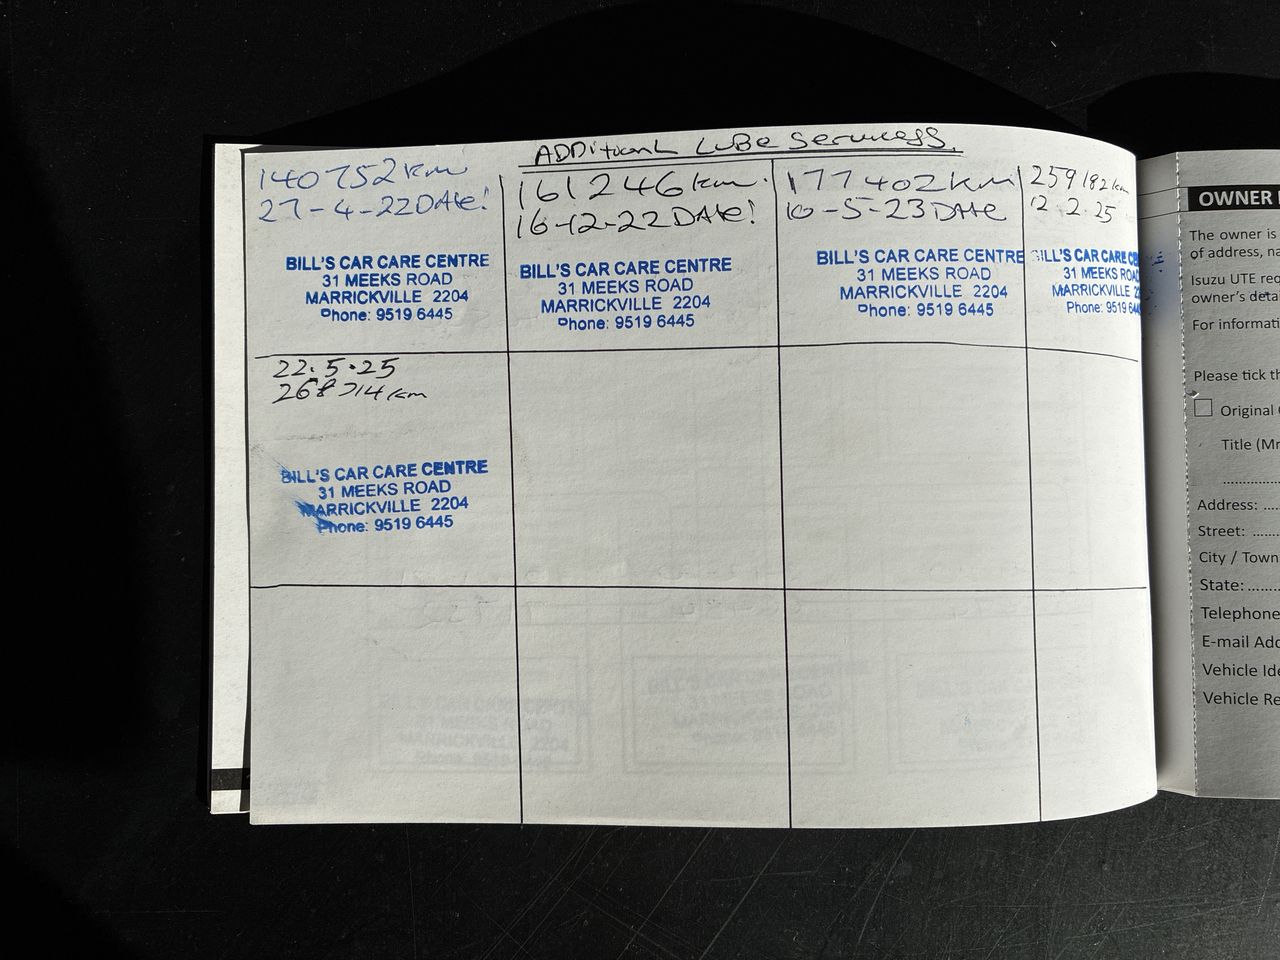 ADDitional LuBe Servicess.
140752 km
27-4-22 DAte!
BILL'S CAR CARE CENTRE
31 MEEKS ROAD
MARRICKVILLE 2204
Phone: 9519 6445
161246 km.
16-12-22 DAte!
BILL'S CAR CARE CENTRE
31 MEEKS ROAD
MARRICKVILLE 2204
Phone: 9519 6445
177402 km
10-5-23 DAte
BILL'S CAR CARE CENTRE
31 MEEKS ROAD
MARRICKVILLE 2204
Phone: 9519 6445
259182 km
12.2.25
BILL'S CAR CARE
31 MEEKS ROAD
MARRICKVILLE
Phone: 9519
22.5.25
km
BILL'S CAR CARE CENTRE
31 MEEKS ROAD
MARRICKVILLE 2204
Phone: 9519 6445
OWNER
The owner is
of address,
Isuzu UTE
owner's
For
Please tick
Original
Title
Address: ....
Street: ......
City / Town
State: .......
Telephone
E-mail
Vehicle
Vehicle